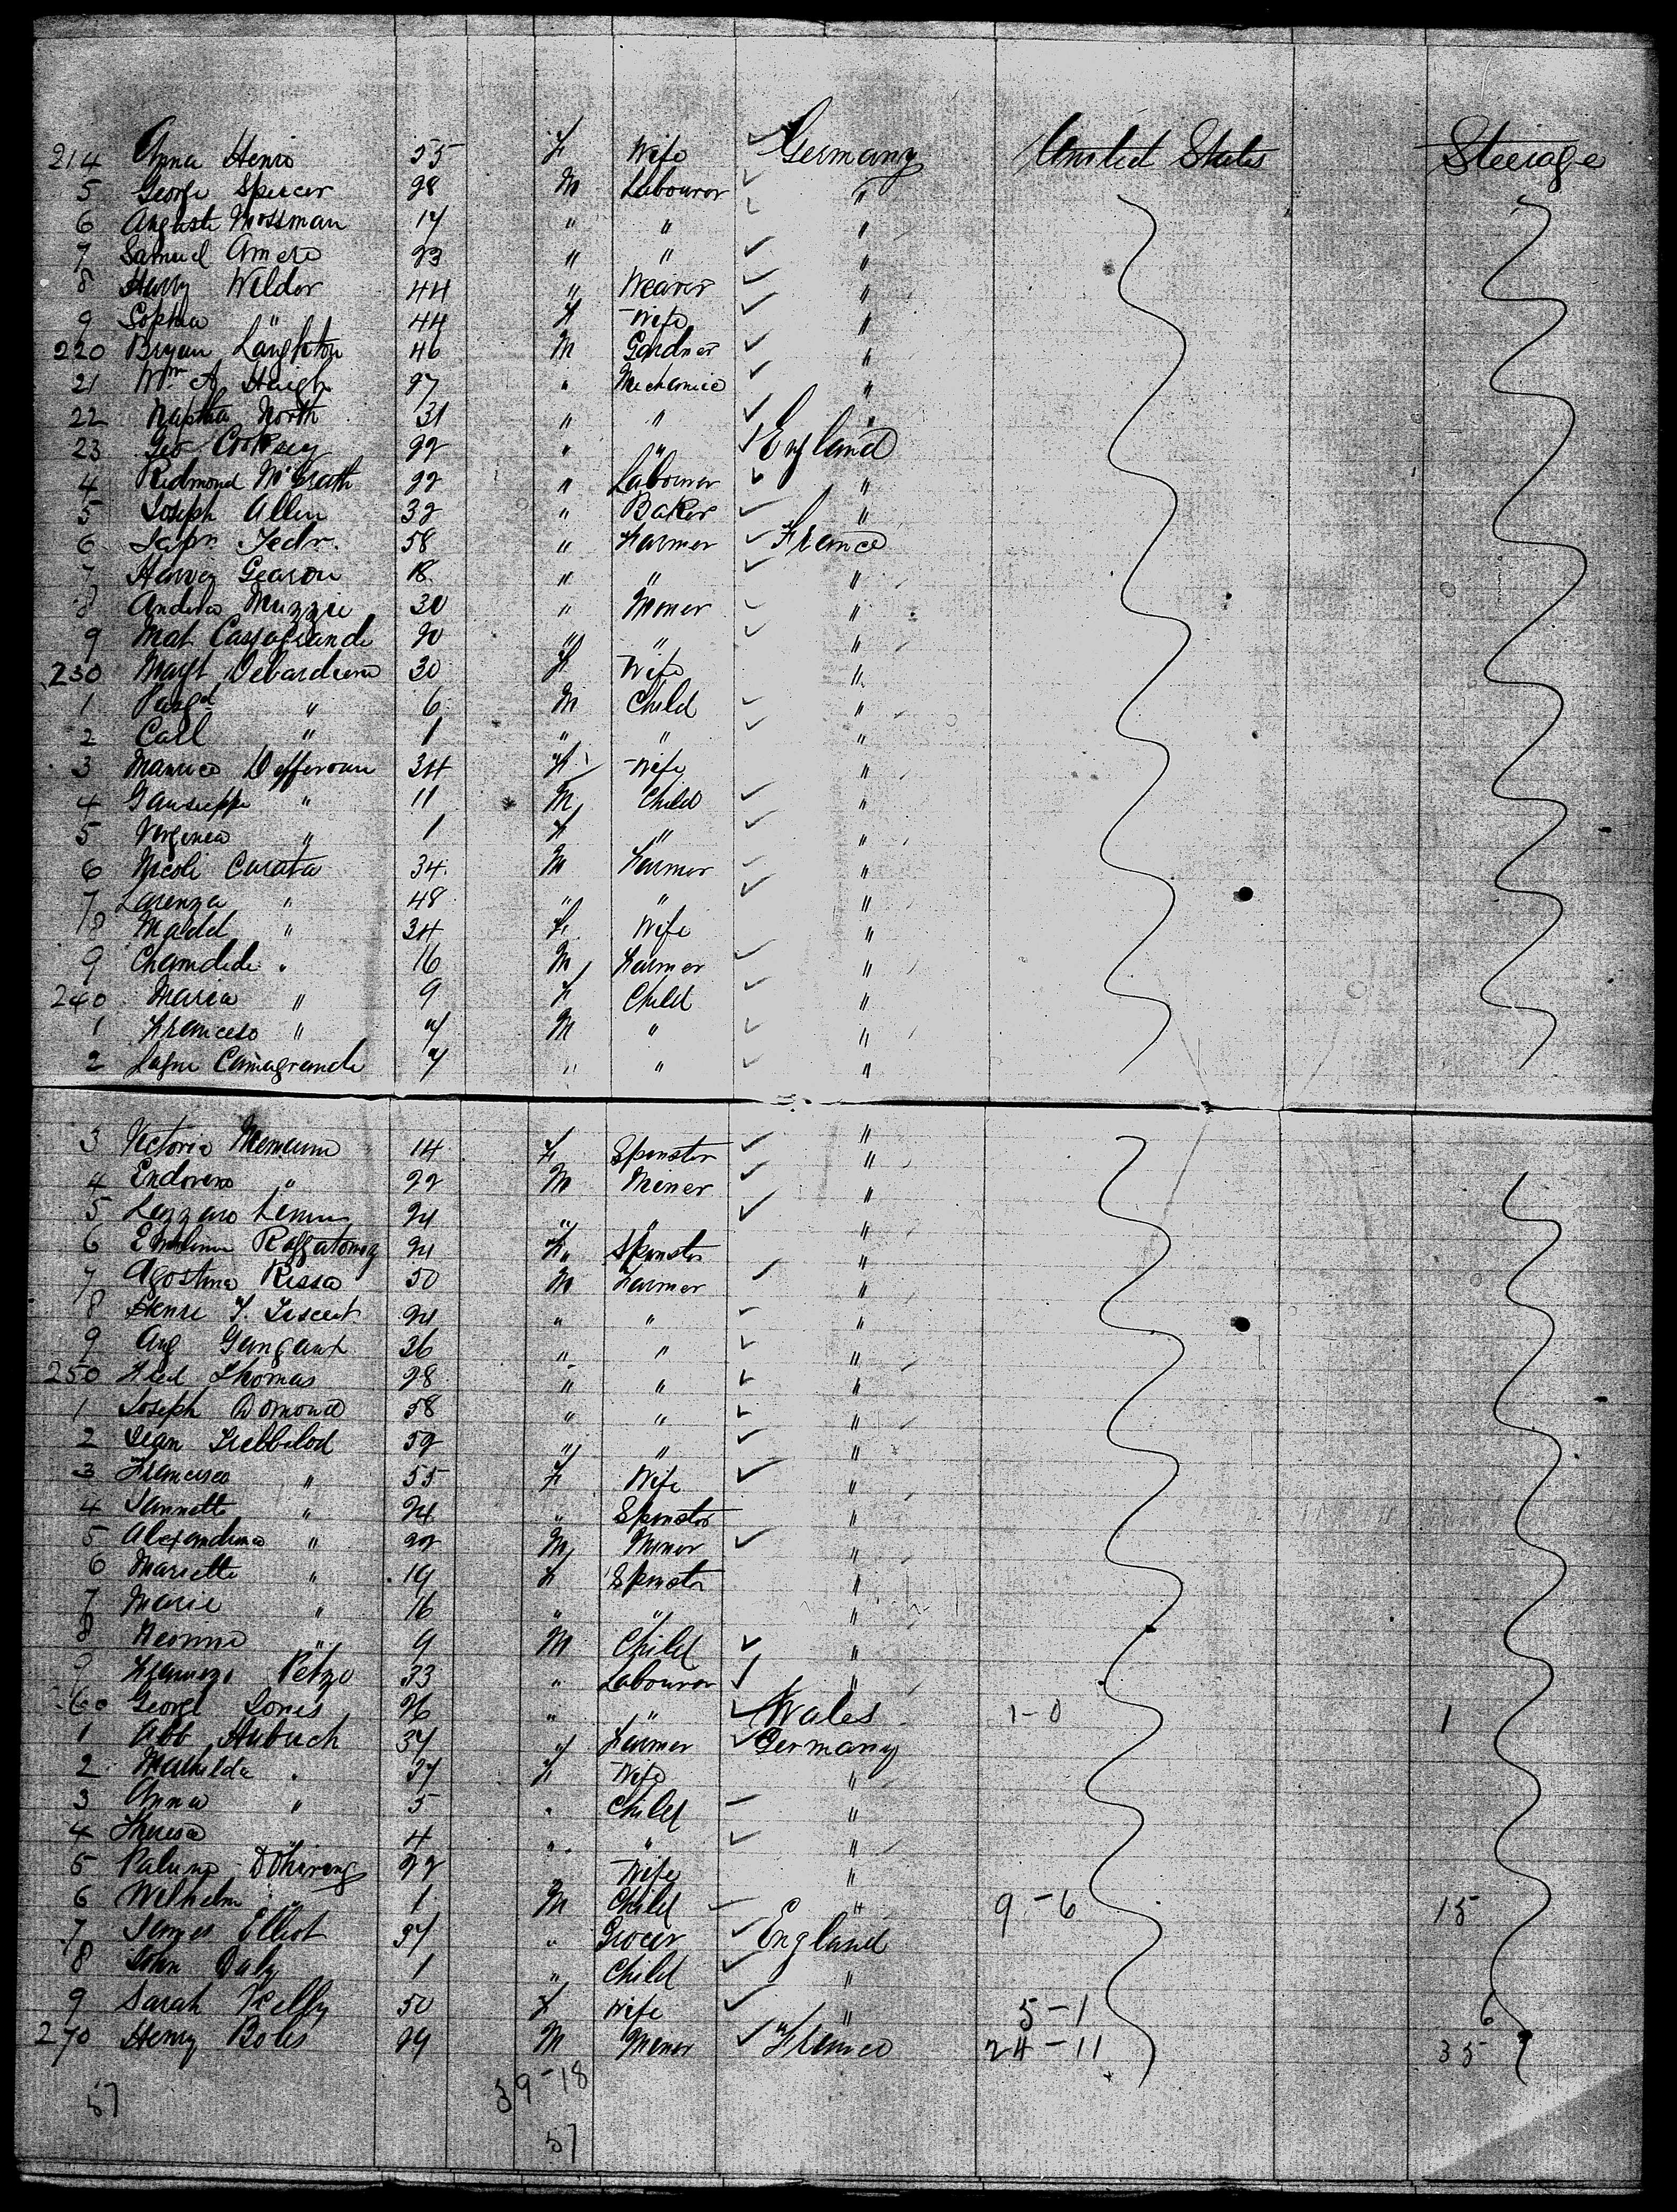 214 Anna Henis 55 F Wife Germany United States Steerage
5 George Spencer 28 M Labourer "
6 August Mossman 17 " " "
7 Samuel Amero 23 " " "
8 Harry Wilder 44 " Weaver "
9 Sophia " 44 F Wife "
220 Bryan Laughton 46 M Gardner "
21 Wm A. Haigh 27 " Mechanic "
22 Naptha North 31 " " "
23 Geo Cooksey 22 " " England
4 Redmond McGrath 22 " Labourer "
5 Joseph Allen 32 " Baker "
6 58 " Farmer France
7 Harvey Gearon 18 " " "
8 Andrea Muzzie 30 " Miner "
9 Mat Cassagrande 20 " " "
230 Magt Debardieno 30 F Wife "
1 " 6 M Child "
2 Carl " 1 " " "
3 34 F Wife "
4 Gauseppe " 11 M Child "
5 Virginea " 1 F " "
6 Nicoli Curata 34 M Farmer "
7 Larenza " 48 " " "
8 Madd " 34 F Wife "
9 Chamdede " 16 M Farmer "
240 Maria " 9 F Child "
1 Franceso " 7 M " "
2 7 " " "
3 Victoria 14 F Spinster "
4 Endoreno " 22 M Miner "
5 Lazzaro 24 " " "
6 24 F Spinster "
7 Agostina Rissa 50 M Farmer "
8 Henri 24 " " "
9 Aug 36 " " "
250 Fred Thomas 28 " " "
1 Joseph Domond 58 " " "
2 Jean Trebbilod 52 " " "
3 Francisca " 55 F Wife "
4 Jannette " 24 " Spinster "
5 Alexandrina " 22 M Miner "
6 Mariette " 19 F Spinster "
7 Marie " 16 " " "
8 " 9 M Child "
9 Petzo 33 " Labourer "
260 George Jones 26 " " Wales 1-0 1
1 Abb Hubuch 37 " Farmer Germany
2 Mathilda " 37 F Wife "
3 Anna " 5 " Child "
4 Theresa " 4 " " "
5 22 " Wife "
6 Wilhelm " 1 M Child " 9-6 15
7 James Elliot 37 " Grocer England
8 John Daly 1 " Child "
9 Sarah Kelly 50 F Wife " 5-1 6
270 Henry Boles 29 M Miner France 24-11 35
57 39-18
57